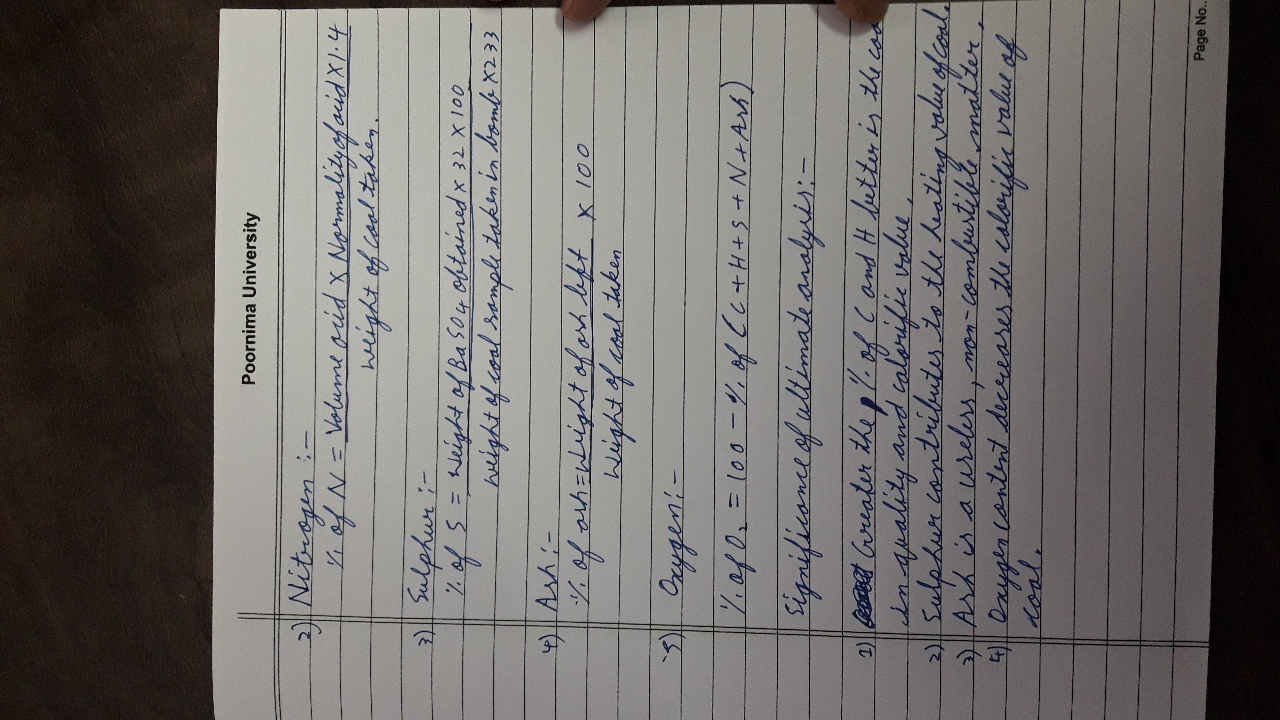 Poornima University
2) Nitrogen :-
% of N = Volume acid x Normality of acid x 1.4
Weight of coal taken.
3) Sulphur :-
% of S = Weight of BaSO4 obtained x 32 x 100
Weight of coal sample taken in bomb x 233
4) Ash :-
% of ash = Weight of ash left x 100
Weight of coal taken
5) Oxygen :-
% of O2 = 100 - % of (C+H+S+N+Ash)
Significance of ultimate analysis :-
1) Greater the % of C and H better is the coa
in quality and calorific value,
2) Sulphur contributes to the heating value of coal.
3) Ash is a useless, non-combustible matter,
4) Oxygen content decreases the calorific value of
coal.
Page No..